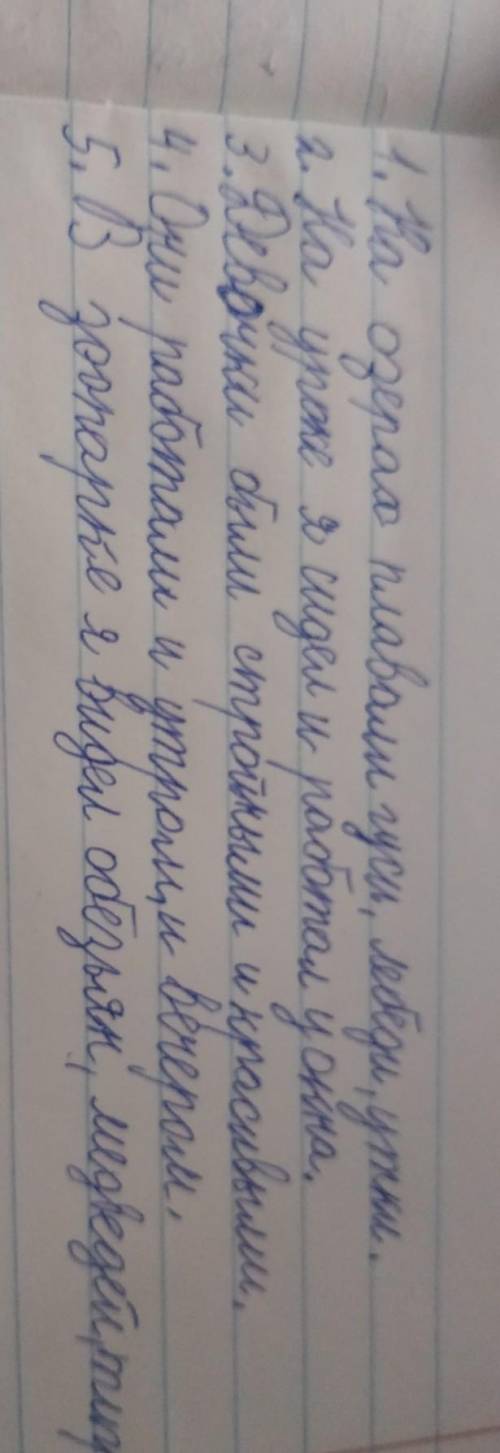 1. На озерах плавали гуси, лебеди, утки.
2. На уроке я сидел и работал у окна.
3. Девочки были стройными и красивыми.
4. Они работали и утром, и вечером.
5. В зоопарке я видел обезьян, медведей,